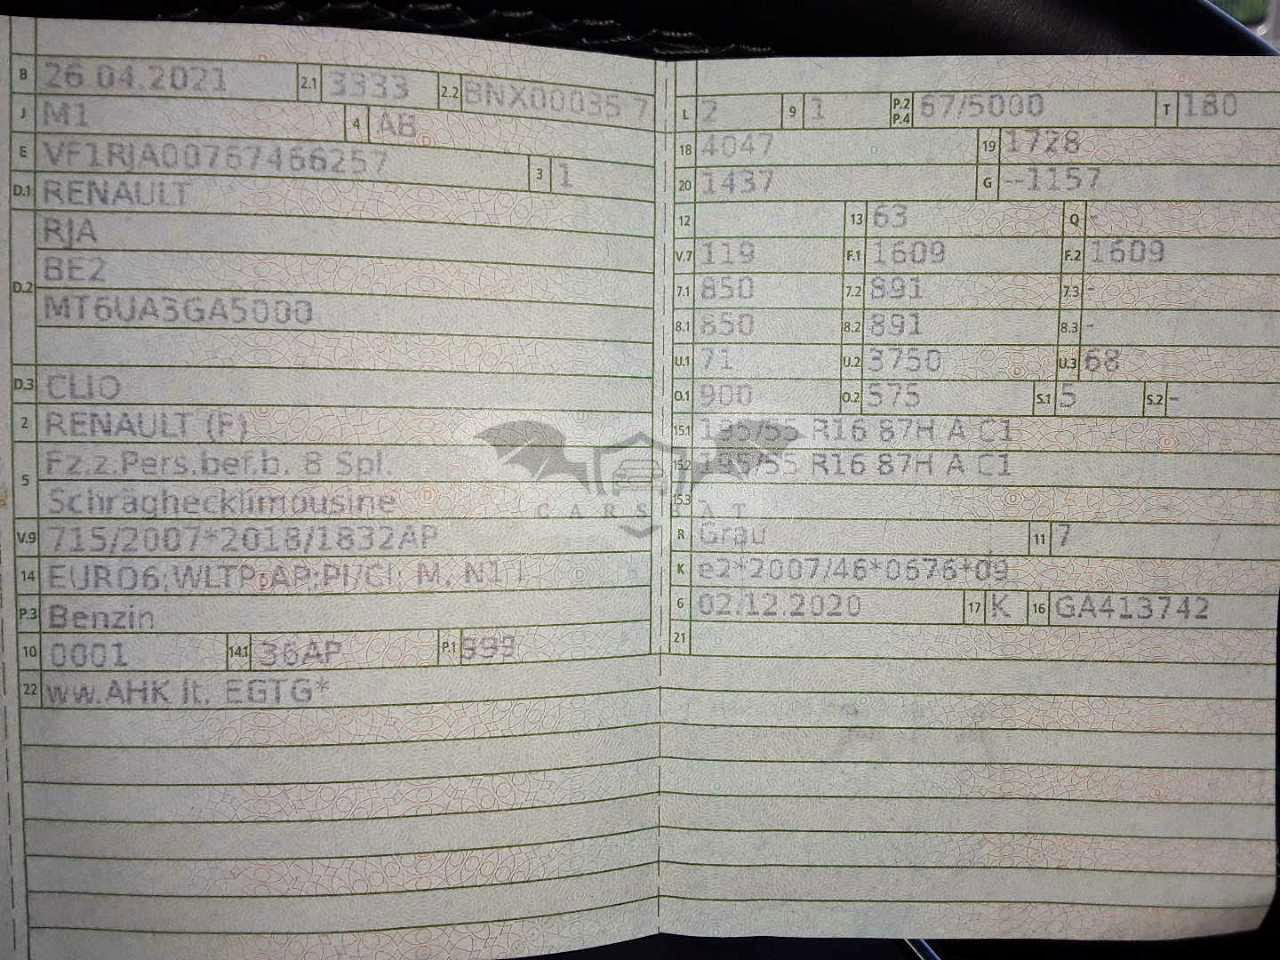 B 26.04.2021 2.1 3333 2.2 BNX00035 7
J M1 4 AB
E VF1RJA00767466257 3 1
D.1 RENAULT
RJA
D.2 BE2
MT6UA3GA5000
D.3 CLIO
2 RENAULT (F)
5 Fz.z.Pers.bef.b. 8 Spl.
Schräghecklimousine
V.9 715/2007*2018/1832AP
14 EURO6;WLTP;AP;PI/CI; M, N1 I
P.3 Benzin
10 0001 14.1 36AP P.1 999
22 ww.AHK lt. EGTG*
L 2 9 1 P.2 P.4 67/5000 T 180
18 4047 19 1728
20 1437 G --1157
12 13 63 Q -
V.7 119 F.1 1609 F.2 1609
7.1 850 7.2 891 7.3 -
8.1 850 8.2 891 8.3 -
U.1 71 U.2 3750 U.3 68
O.1 900 O.2 575 S.1 5 S.2 -
15.1 195/55 R16 87H A C1
15.2 195/55 R16 87H A C1
15.3
R Grau 11 7
K e2*2007/46*0676*09
6 02.12.2020 17 K 16 GA413742
21
CARSBAT